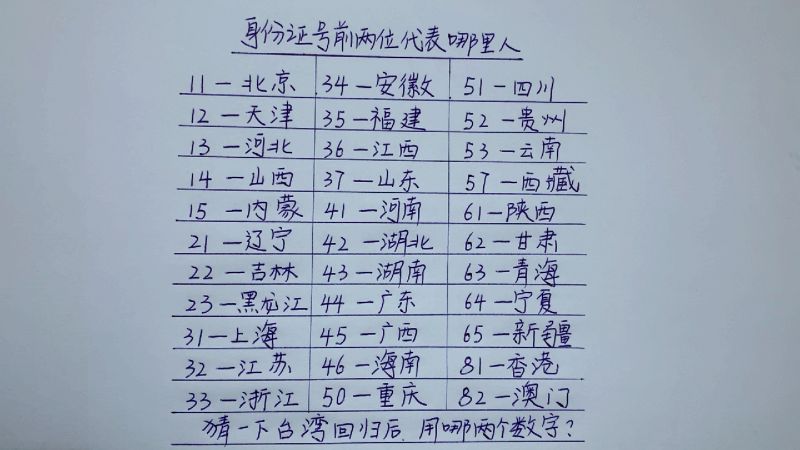 身份证号前两位代表哪里人
11－北京 34－安徽 51－四川
12－天津 35－福建 52－贵州
13－河北 36－江西 53－云南
14－山西 37－山东 57－西藏
15－内蒙 41－河南 61－陕西
21－辽宁 42－湖北 62－甘肃
22－吉林 43－湖南 63－青海
23－黑龙江 44－广东 64－宁夏
31－上海 45－广西 65－新疆
32－江苏 46－海南 81－香港
33－浙江 50－重庆 82－澳门
猜一下台湾回归后.用哪两个数字?